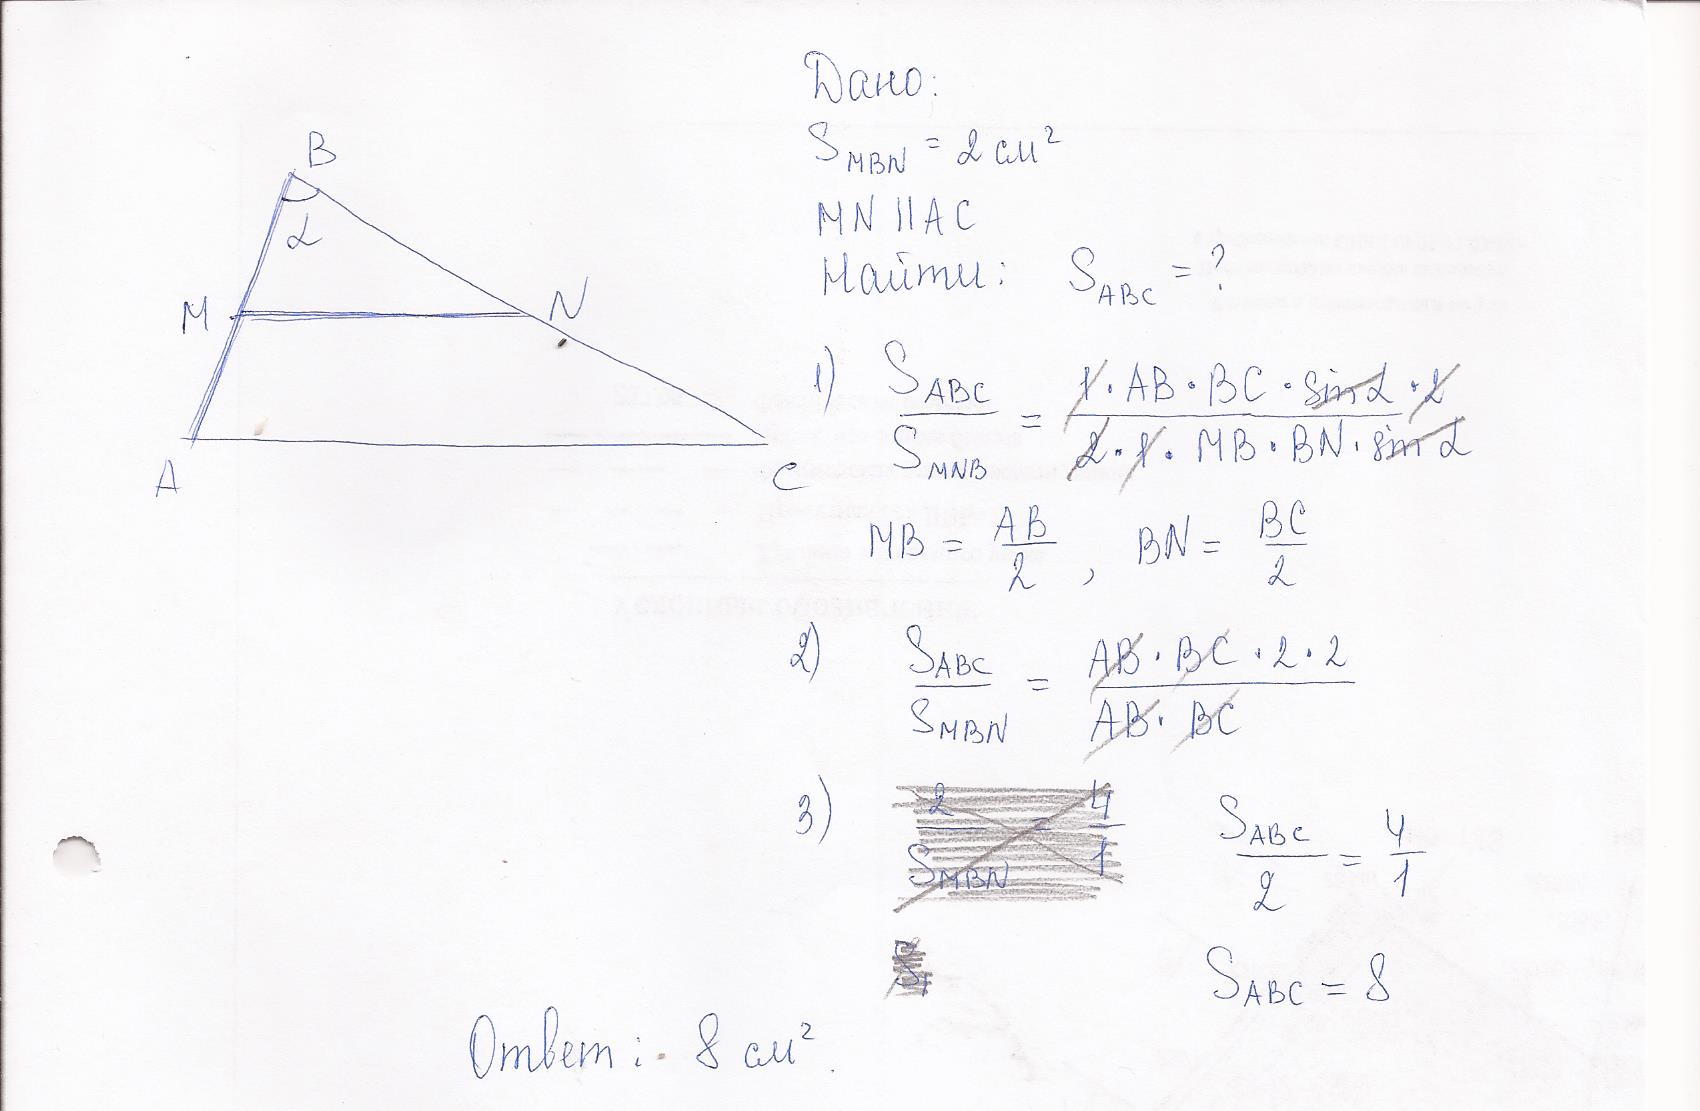 B
α
M
N
A
C
Дано:
S_MBN = 2 см²
MN || AC
Найти: S_ABC = ?
1) S_ABC / S_MNB = 1 · AB · BC · sin α · 2 / 2 · 1 · MB · BN · sin α
MB = AB / 2 , BN = BC / 2
2) S_ABC / S_MBN = AB · BC · 2 · 2 / AB · BC
3) 2 / S_MBN = 4 / 1 S_ABC / 2 = 4 / 1
S_ABC = 8
Ответ: 8 см².